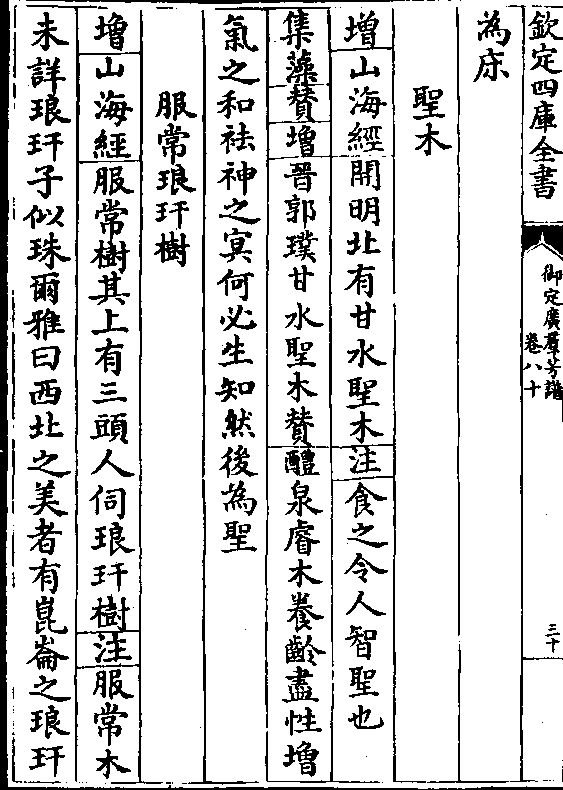 欽定四庫全書
御定廣羣芳譜
卷八十
三十
為床
聖木
增山海經開明北有甘水聖木注食之令人智聖也
集藻贊增晉郭璞甘水聖木贊醴泉睿木養齡盡性增
氣之和袪神之冥何必生知然後為聖
服常琅玕樹
增山海經服常樹其上有三頭人伺琅玕樹注服常木
未詳琅玕子似珠爾雅曰西北之美者有崑崙之琅玕